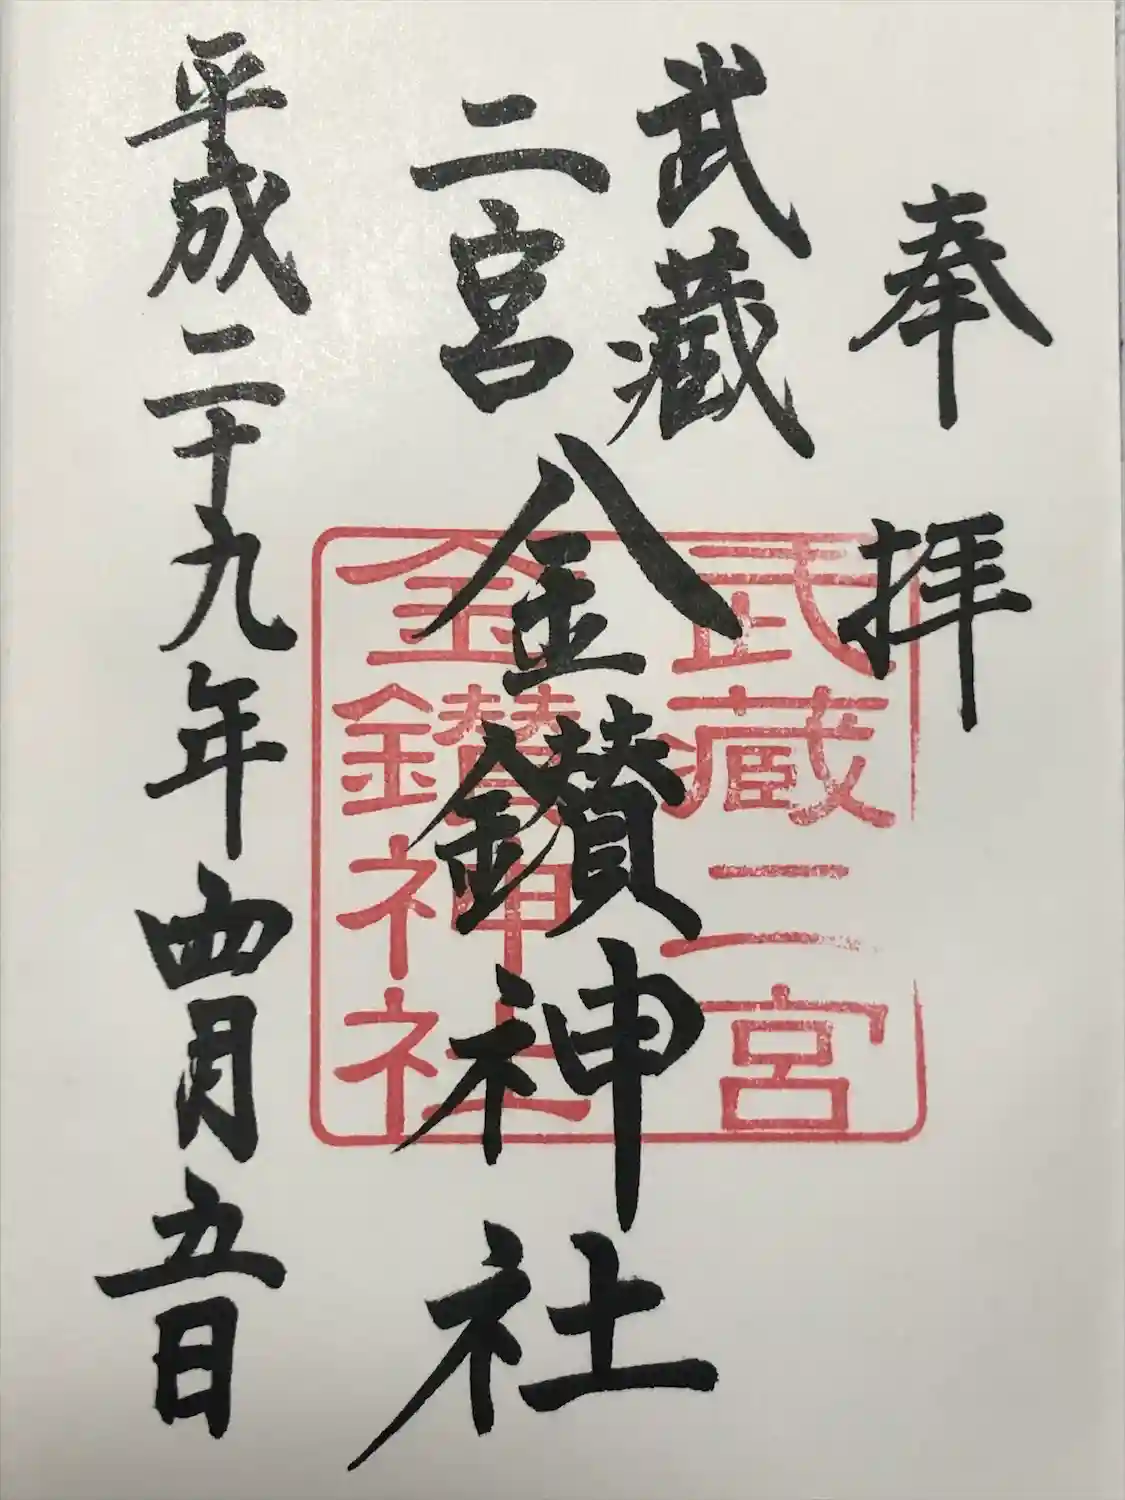 奉拝
武蔵
二宮
金鑚神社
武蔵二宮
金鑚神社
平成二十九年四月五日